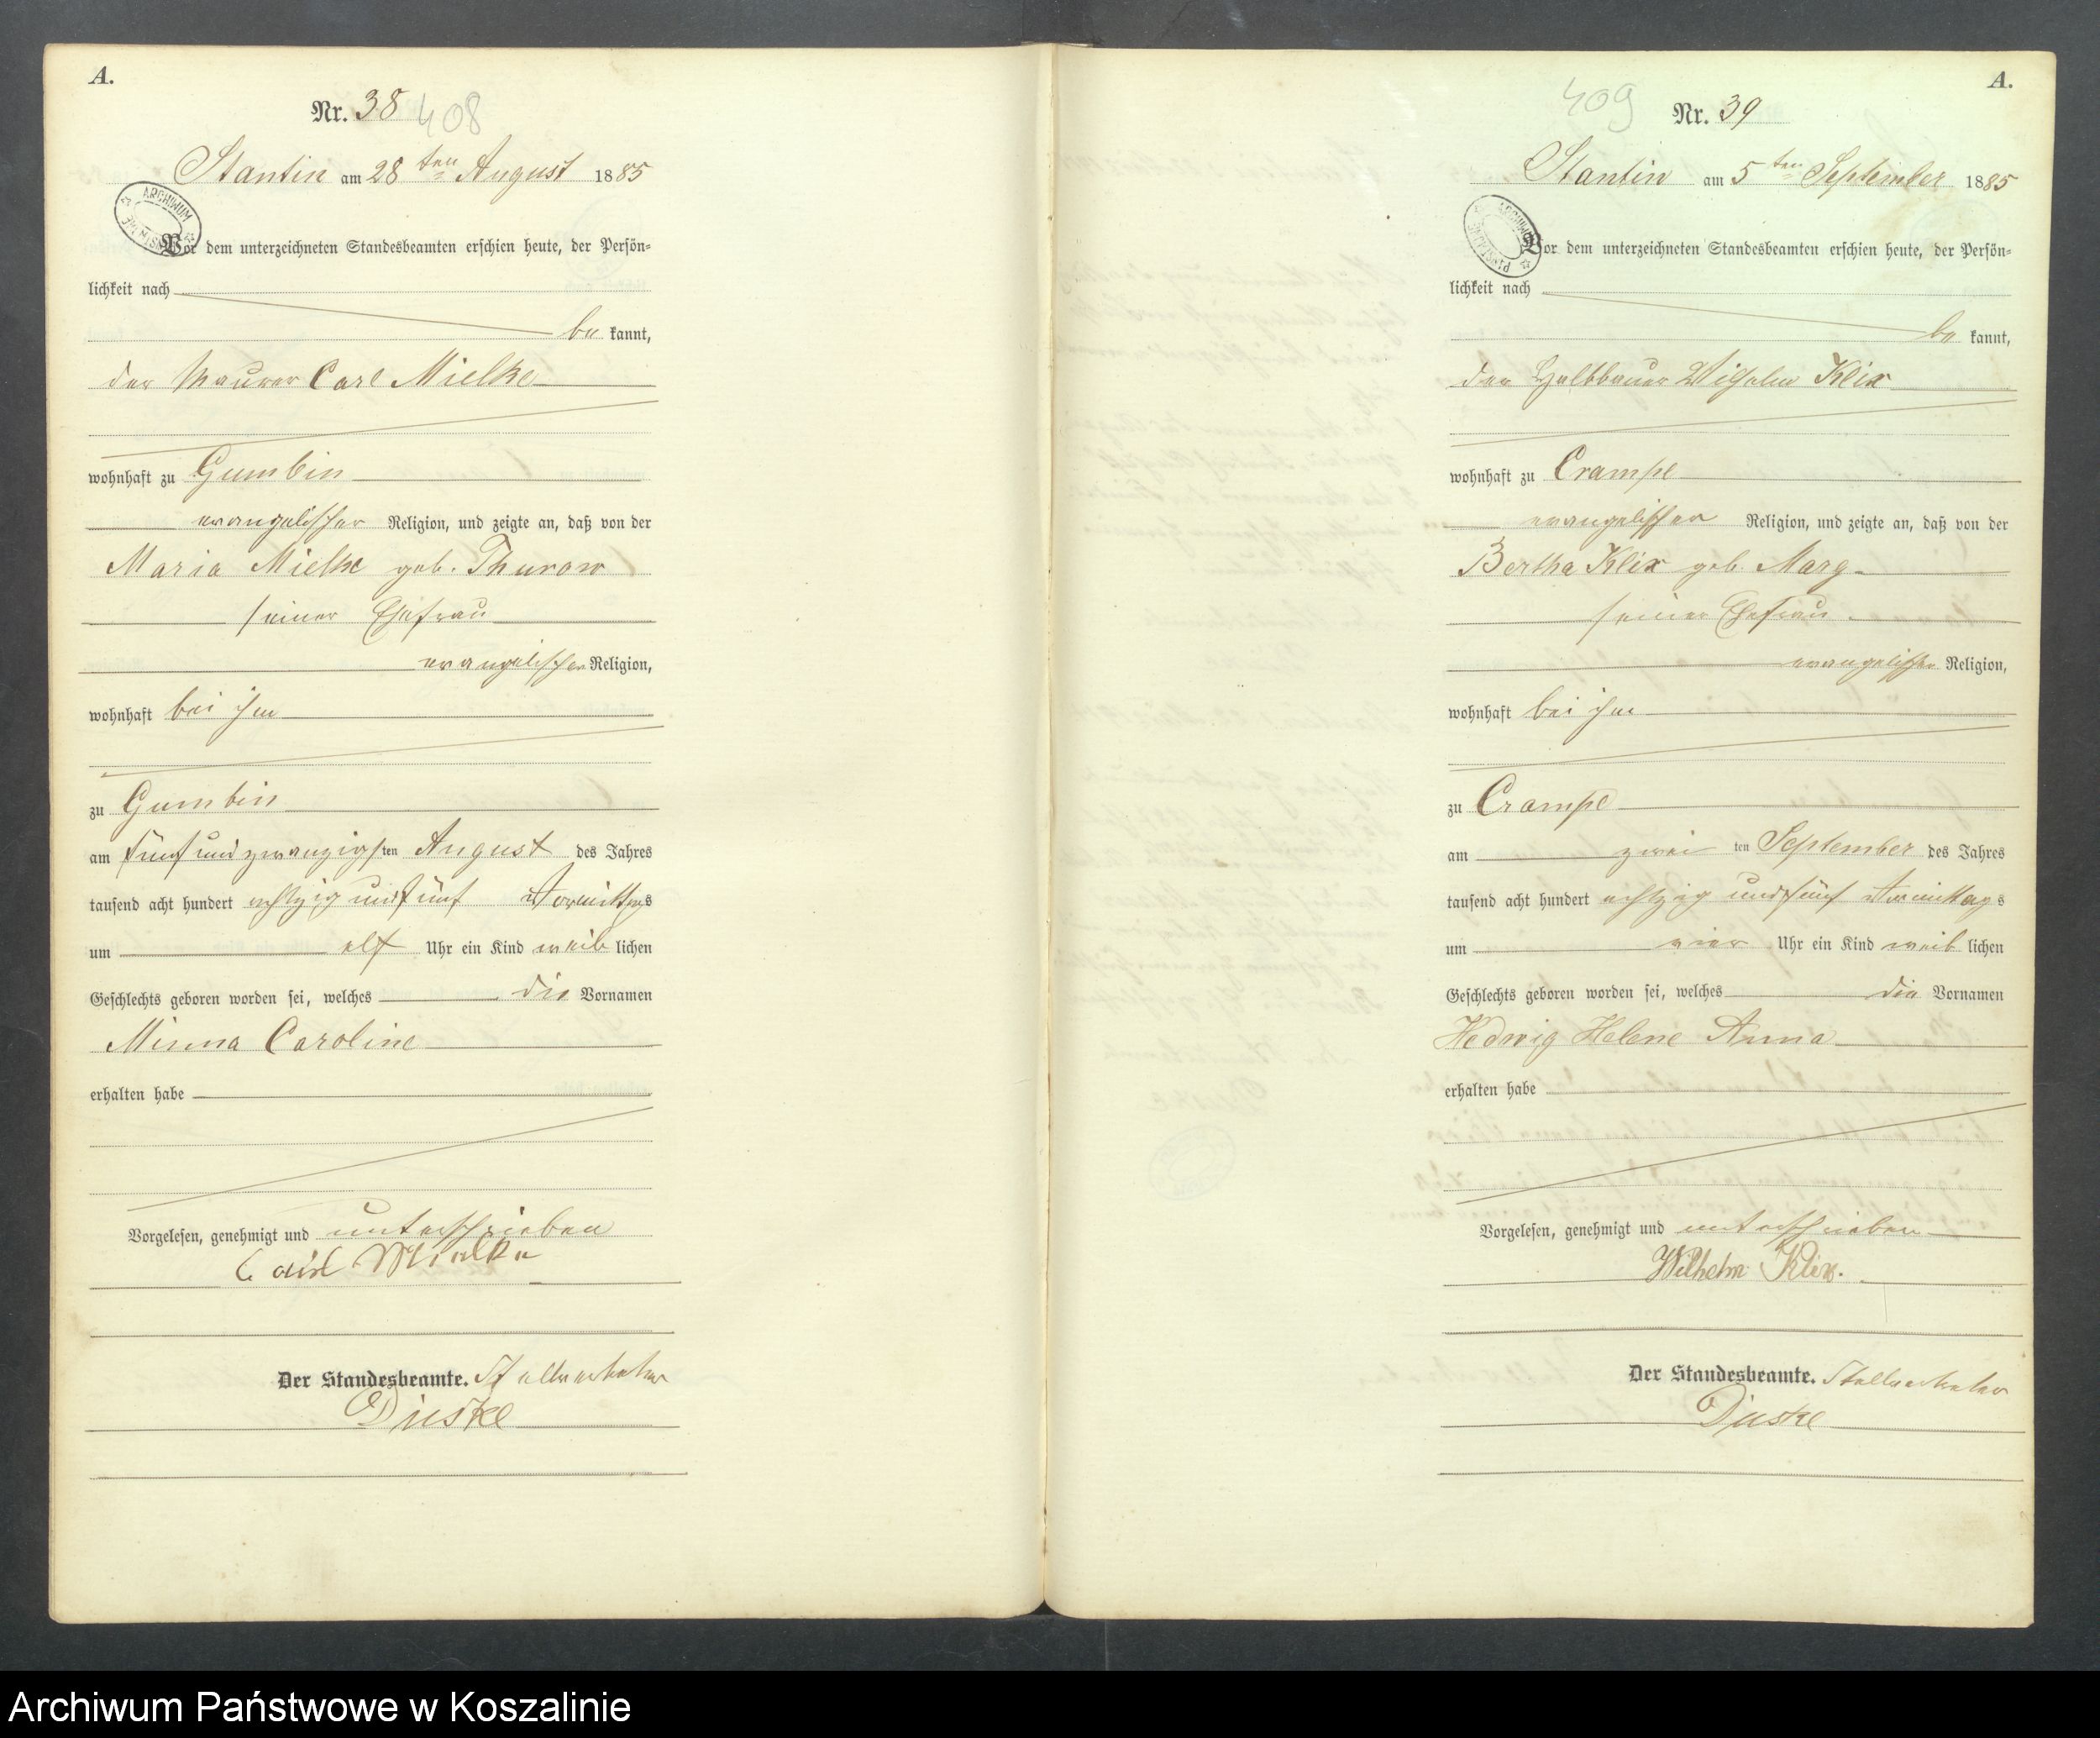 A.
Nr. 38 408
Stantin am 28 ten August 1885
ARCHIWUM
Vor dem unterzeichneten Standesbeamten erschien heute, der Persön=
lichkeit nach
be kannt,
der Maurer Carl Mielke
wohnhaft zu Gumbin
evangelischer Religion, und zeigte an, daß von der
Maria Mielke geb. Thurow
seiner Ehefrau
evangelischer Religion,
wohnhaft bei ihm
zu Gumbin
am fünf und zwanzigsten August des Jahres
tausend acht hundert achtzig und fünf Vormittags
um elf Uhr ein Kind weib lichen
Geschlechts geboren worden sei, welches die Vornamen
Minna Caroline
erhalten habe
Vorgelesen, genehmigt und unterschrieben
Carl Mielke
Der Standesbeamte. Stellvertreter
Duske
A.
409 Nr. 39
Stantin am 5 ten September 1885
ARCHIWUM PAŃSTWOWE
Vor dem unterzeichneten Standesbeamten erschien heute, der Persön=
lichkeit nach
be kannt,
der Halbbauer Wilhelm Klix
wohnhaft zu Crampe
evangelischer Religion, und zeigte an, daß von der
Bertha Klix geb. Marg
seiner Ehefrau
evangelischer Religion,
wohnhaft bei ihm
zu Crampe
am zwei ten September des Jahres
tausend acht hundert achtzig und fünf Vormittags
um vier Uhr ein Kind weib lichen
Geschlechts geboren worden sei, welches die Vornamen
Hedwig Helene Anna
erhalten habe
Vorgelesen, genehmigt und unterschrieben
Wilhelm Klix.
Der Standesbeamte. Stellvertreter
Duske
Archiwum Państwowe w Koszalinie